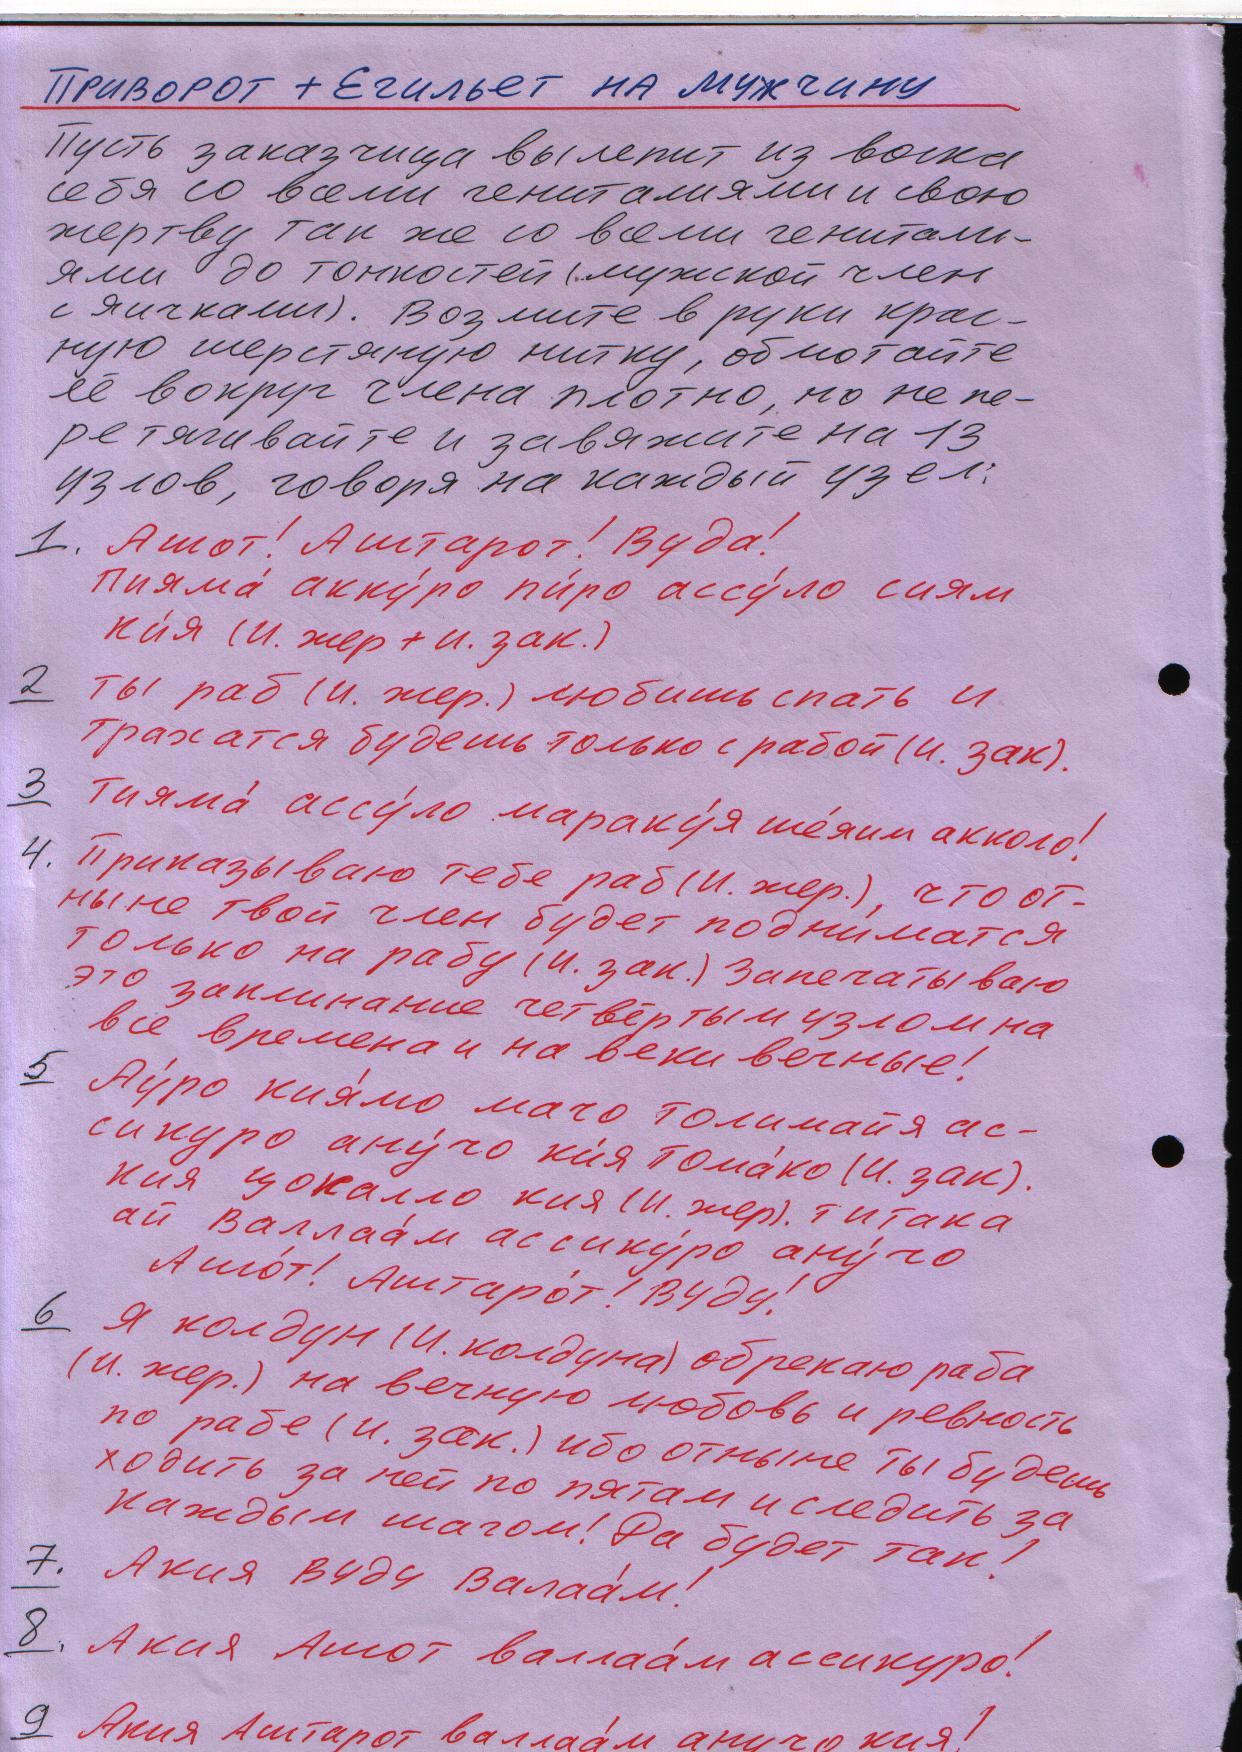 ПРИВОРОТ + ЕГИЛЬЕТ НА МУЖЧИНУ
Пусть заказчица вылепит из воска
себя со всеми гениталиями и свою
жертву так же со всеми генитали-
ями до тонкостей (мужской член
с яичками). Возмите в руки крас-
ную шерстяную нитку, обмотайте
её вокруг члена плотно, но не пе-
ретягивайте и завяжите на 13
узлов, говоря на каждый узел:
1. Ашот! Аштарот! Вуда!
Пияма́ акку́ро пи́ро ассу́ло сиям
ки́я (И. жер + И. зак.)
2 Ты раб (И. жер.) любишь спать и
трахатся будешь только с рабой (И. зак).
3 Тияма́ ассу́ло мараку́я ше́яим акколо!
4. Приказываю тебе раб (И. жер.), что от-
ныне твой член будет подниматся
только на рабу (И. зак.) Запечатываю
это заклинание четвёртым узлом на
все времена и на веки вечные!
5 Ау́ро кия́мо мачо толимайя ас-
сикуро ану́чо ки́я тома́ко (И. зак).
Кия цокалло кия (И. жер). титака
ай Валлаа́м ассику́ро ану́чо
Ашо́т! Аштаро́т! Вуду!
6 Я колдун (И. колдуна) обрекаю раба
(И. жер.) на вечную любовь и ревность
по рабе (И. зак.) ибо отныне ты будешь
ходить за ней по пятам и следить за
каждым шагом! Да будет так!
7. Акия Вуду Валаа́м!
8. Акия Ашот валлаа́м ассикуро!
9 Акия Аштарот валлаа́м анучо кия!